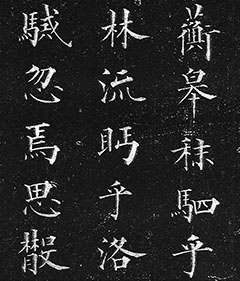 蘅皋秣駟乎
林流眄乎洛
駴忽焉思散